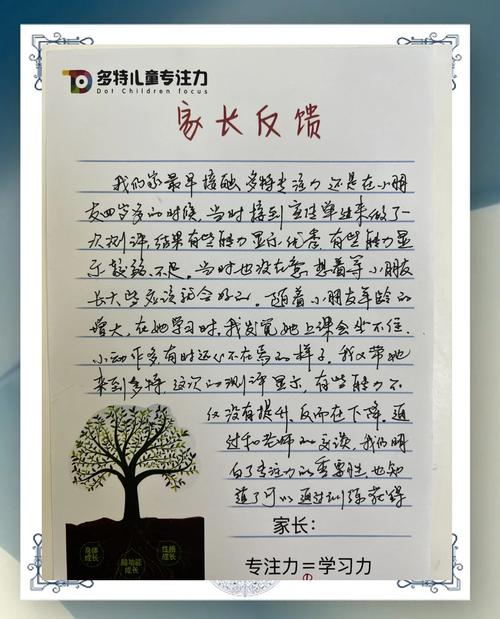 多特儿童专注力
Dot Children focus
家长反馈
我们家最早接触多特专注力还是在小朋
友四岁多的时候，当时接到宣传单过来做了一
次测评，结果有些能力显示优秀，有些能力显
示较弱、不足。当时也没在意，想着等小朋友
长大些应该就会好的。随着小朋友年龄的
增大，在她学习时，我发觉她上课会坐不住，
小动作多有时还心不在焉的样子。我又带她
来到多特，这次的测评显示，有些能力不
仅没有提升，反而在下降。通
过和老师的交谈，我们明
白了专注力的重要性，也知
道了可以通过训练获得
家长：
身体
成长
脑功能
成长
性格
成长
专注力＝学习力